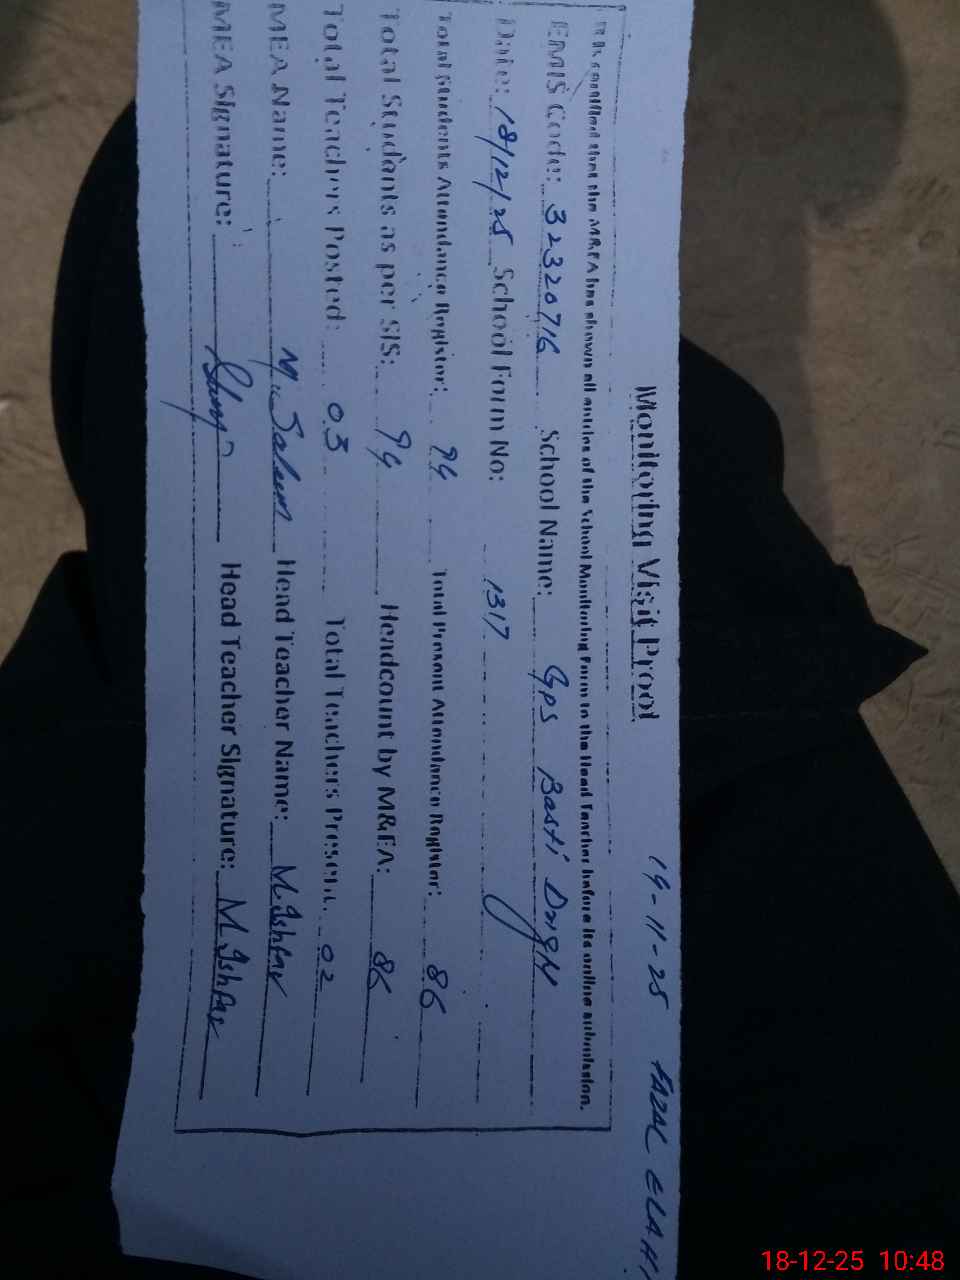 19-11-25 FAZAL ELAHI
Monitoring Visit Proof
It is certified that the M&EA has shown all entries of the School Monitoring Form to the Head Teacher before its online submission.
EMIS Code: 32320716 School Name: GPS Basti
Date: 18/12/25 School Form No: 1317
Total Students Attendance Register: 94 Total Present Attendance Register: 86
Total Students as per SIS: 94 Headcount by M&EA: 86
Total Teachers Posted: 03 Total Teachers Present: 02
MEA Name: M. Saleem Head Teacher Name: M. Ishfaq
MEA Signature: Head Teacher Signature: M. Ishfaq
18-12-25 10:48